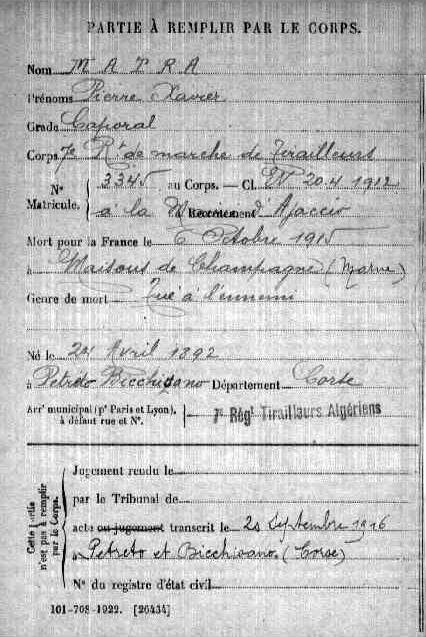 PARTIE À REMPLIR PAR LE CORPS.
Nom MATRA
Prénoms Pierre Xavier
Grade Caporal
Corps 7e Rt de marche de Tirailleurs
N° Matricule. 3345 au Corps. — Cl. EV 20.4 1912
à la Recrutement d'Ajaccio
Mort pour la France le 6 Octobre 1915
à Maisons de Champagne (Marne)
Genre de mort Tué à l'ennemi
Né le Avril 1892
à Petreto Bicchisano Département Corse
Arrt municipal (pr Paris et Lyon), à défaut rue et N°.
7e Régt Tirailleurs Algériens
Cette partie n'est pas à remplir par le Corps.
Jugement rendu le
par le Tribunal de
acte ou jugement transcrit le Septembre 1916
à Petreto et Bicchisano (Corse)
N° du registre d'état civil
101-708-1922. [26434]